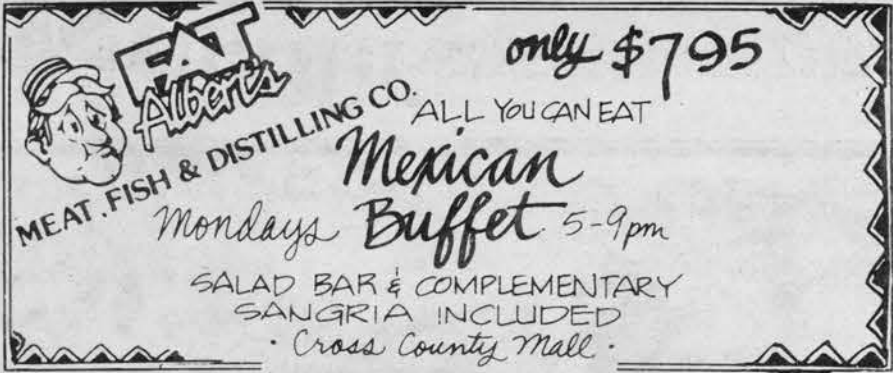 FAT
Albert's
MEAT, FISH & DISTILLING CO.
only $7.95
ALL YOU CAN EAT
Mexican
Buffet
Mondays 5-9pm
SALAD BAR & COMPLEMENTARY
SANGRIA INCLUDED
· Cross County Mall ·